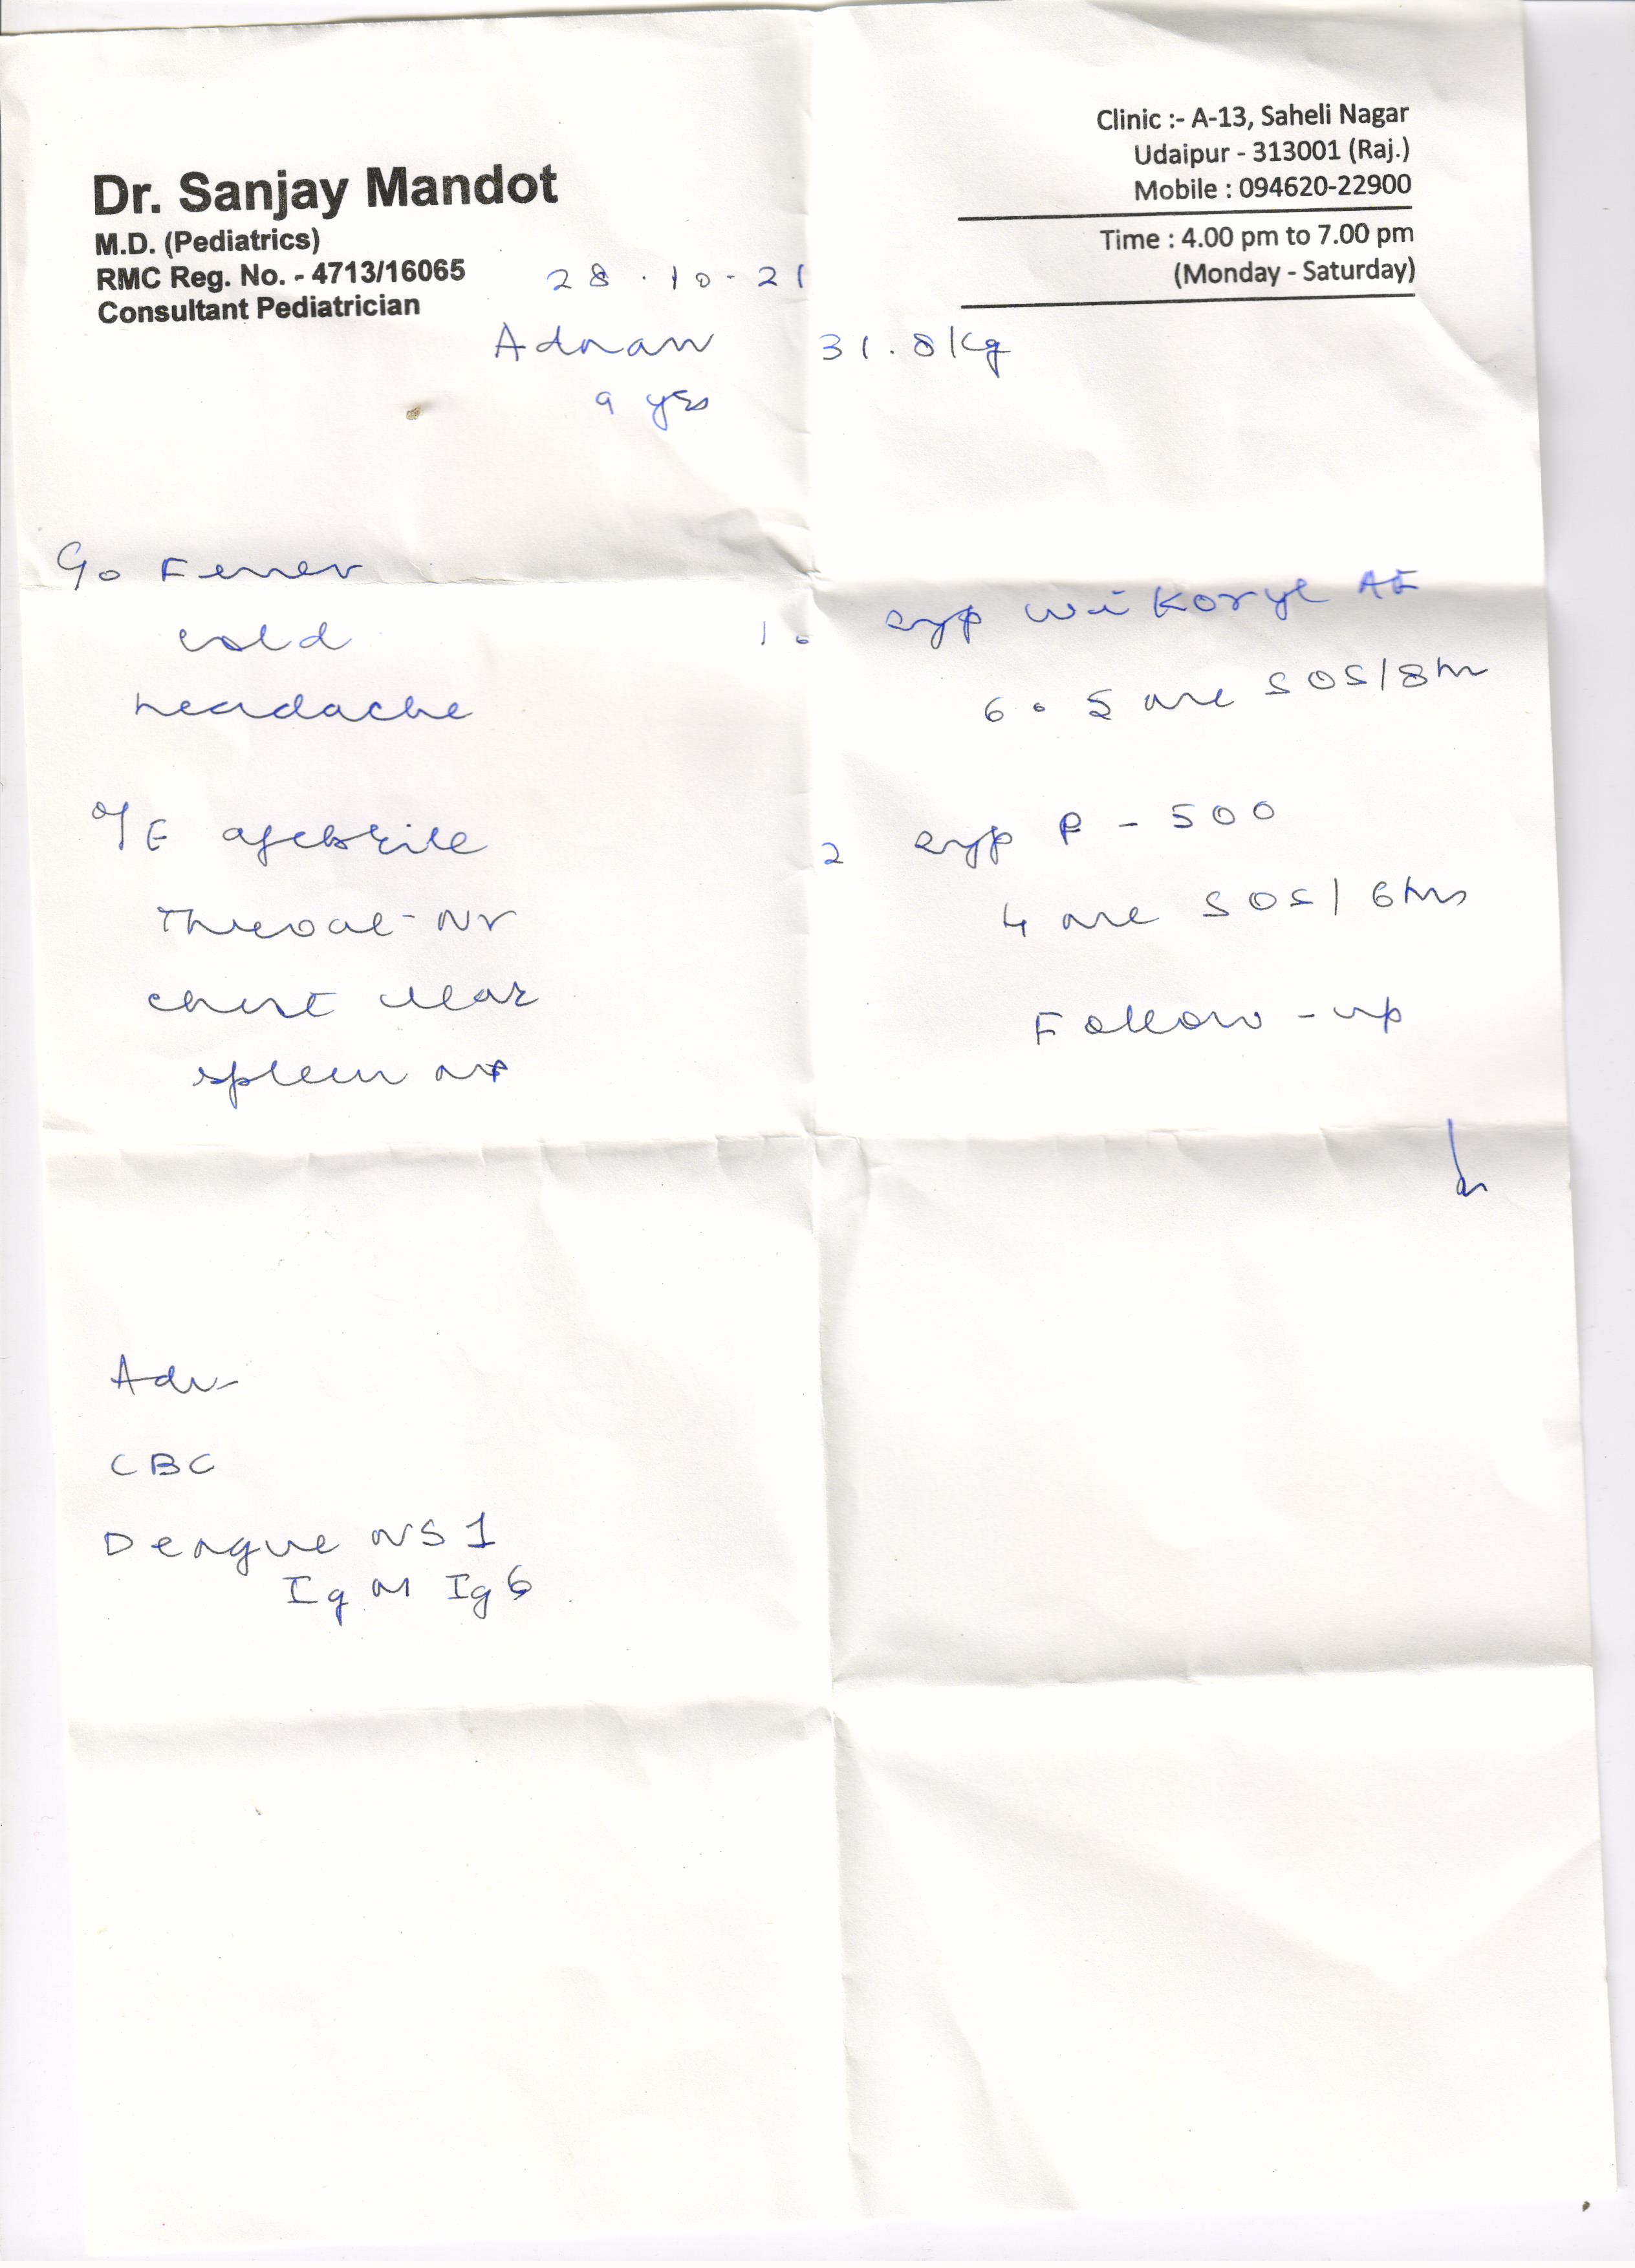 Dr. Sanjay Mandot
M.D. (Pediatrics)
RMC Reg. No. - 4713/16065
Consultant Pediatrician
Clinic :- A-13, Saheli Nagar
Udaipur - 313001 (Raj.)
Mobile : 094620-22900
Time : 4.00 pm to 7.00 pm
(Monday - Saturday)
28.10-21
Adnan 31.8kg
9 yrs
C/o Fever
cold
headache
O/E afebrile
Throat - Nr
chest clear
spleen np
Adv
CBC
Dengue NS1
IgM IgG
1. syp Wikoryl AF
6.5 ml SOS/8hr
2 syp P-500
4 ml SOS/6hrs
Follow-up